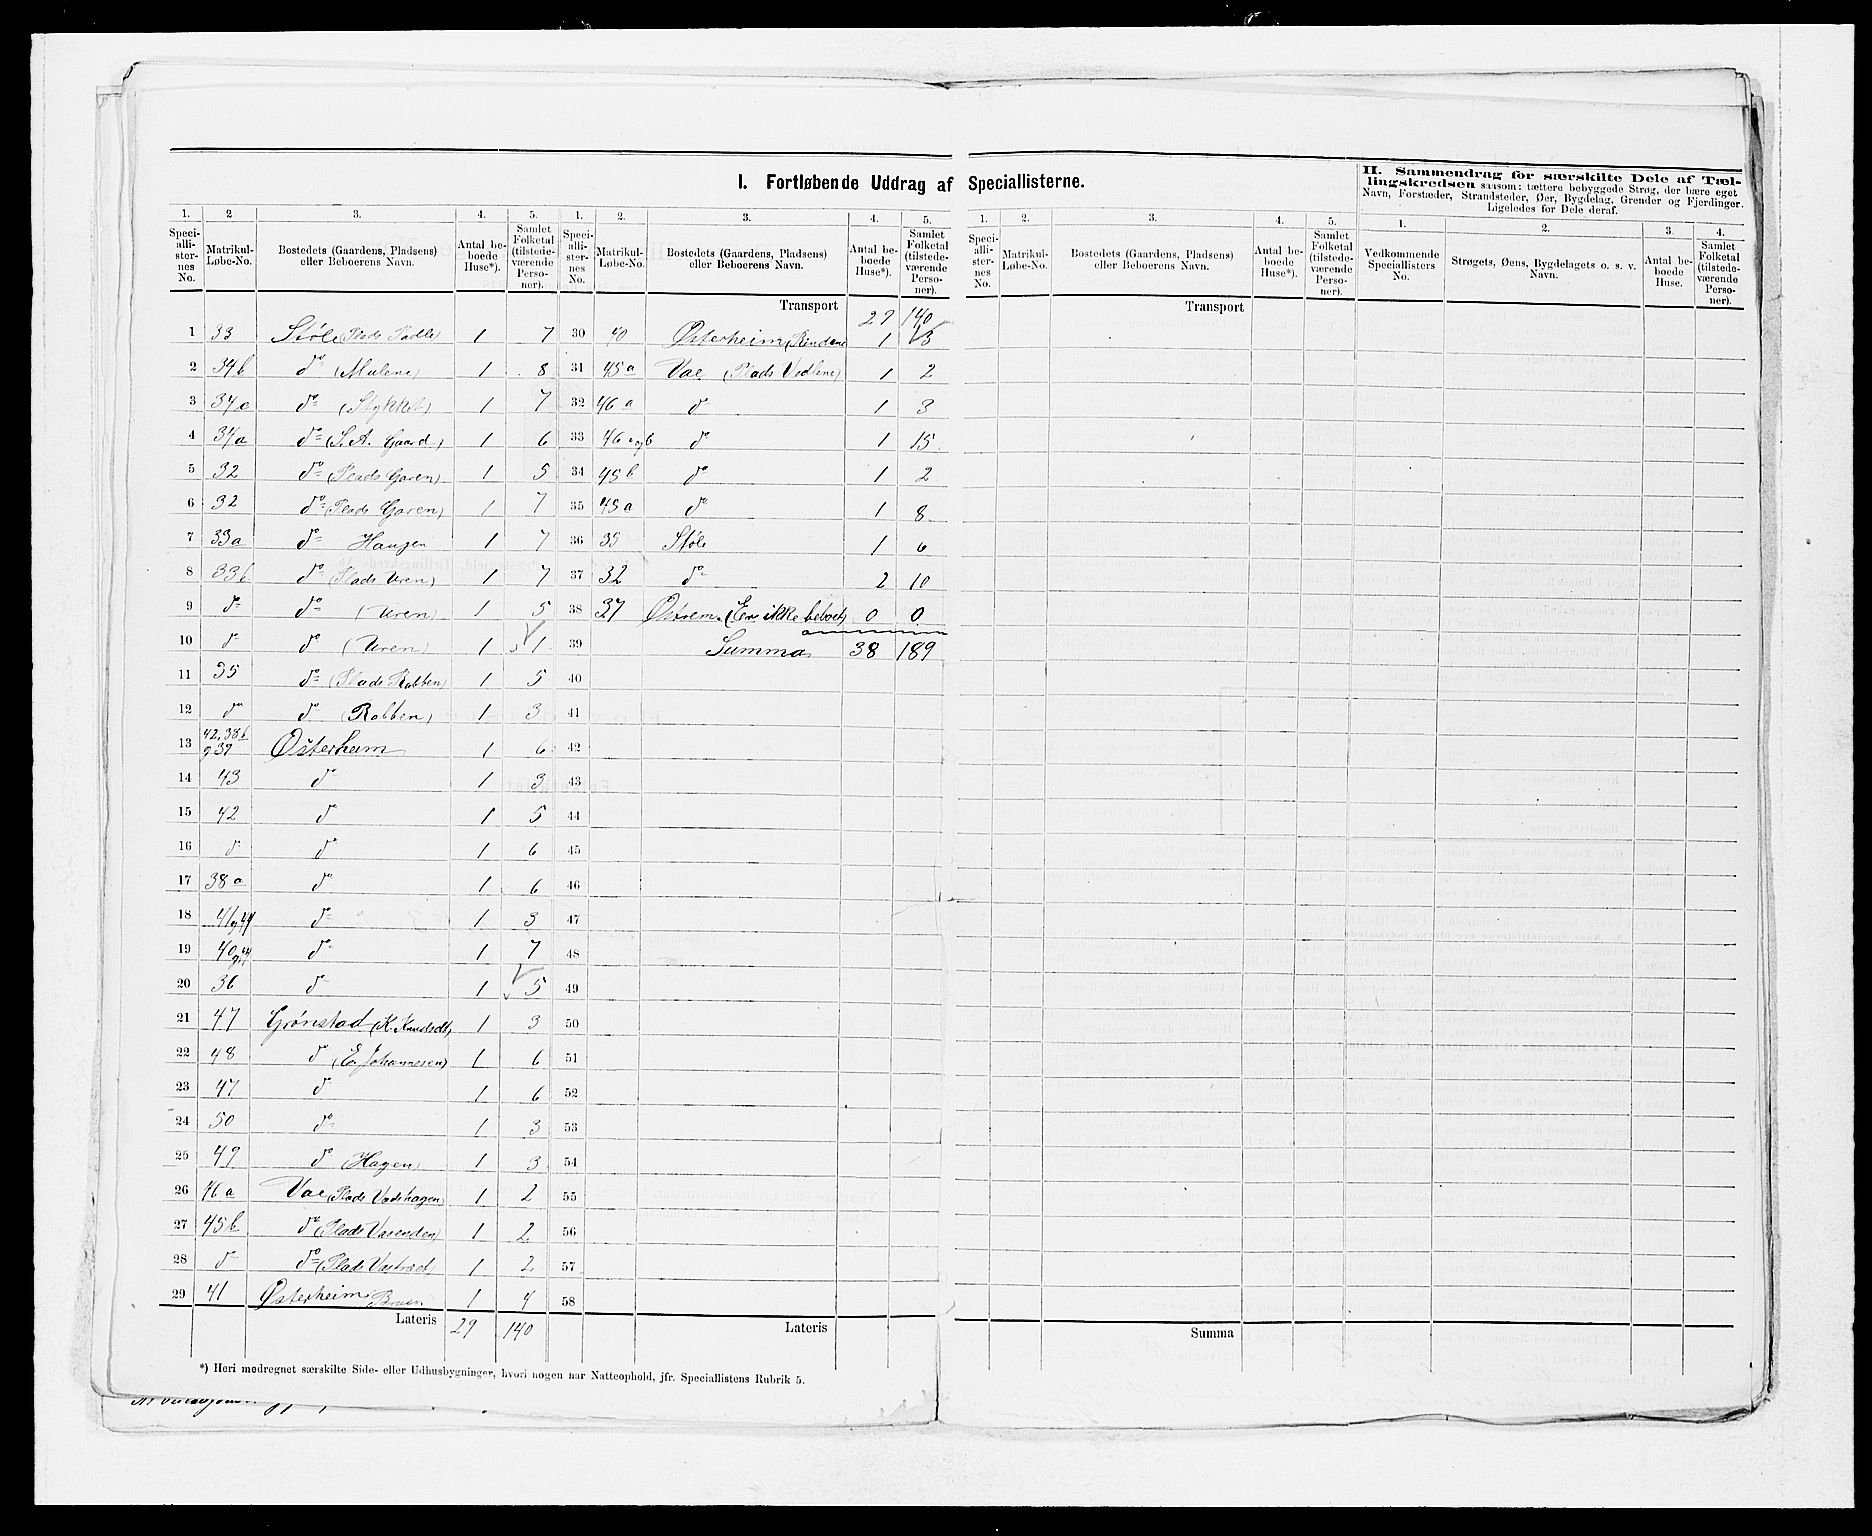 I. Fortløbende Uddrag af Speciallisterne.
II. Sammendrag for særskilte Dele af Tæl-
lingskredsen saasom: tættere bebyggede Strøg, der bære eget
Navn, Forstæder, Strandsteder, Øer, Bygdelag, Grender og Fjerdinger.
Ligeledes for Dele deraf.
1. 2 3. 4. 5. 1. 2. 3. 4. 5. 1. 2. 3. 4. 5. 1. 2. 3. 4.
Speci-
alli-
ster-
nes
No.
Matrikul-
Løbe-No.
Bostedets (Gaardens, Pladsens)
eller Beboerens Navn.
Antal be-
boede
Huse*).
Samlet
Folketal
(tilstede-
værende
Perso-
ner).
Speci-
alli-
ster-
nes
No.
Matrikul-
Løbe-No.
Bostedets (Gaardens, Pladsens)
eller Beboerens Navn.
Antal be-
boede
Huse*).
Samlet
Folketal
(tilstede-
værende
Perso-
ner).
Speci-
alli-
ster-
nes
No.
Matrikul-
Løbe-No.
Bostedets (Gaardens, Pladsens)
eller Beboerens Navn.
Antal be-
boede
Huse*).
Samlet
Folketal
(tilstede-
værende
Perso-
ner).
Vedkommende
Speciallisters
No.
Strøgets, Øens, Bygdelagets o. s. v.
Navn.
Antal be-
boede
Huse.
Samlet
Folketal
(tilstede-
værende
Perso-
ner).
1 33 Støle (Plads Padle) 1 7
2 34b do (Mulene) 1 8
3 34c do (Stykket) 1 7
4 34a do (S.A. Gaard) 1 6
5 32 do (Plads Garen) 1 5
6 32 do (Plads Garen) 1 7
7 33a do Haugen 1 7
8 33b do (Plads Uren) 1 7
9 do do (Uren) 1 5
10 do do (Uren) 1 1
11 35 do (Plads Rabben) 1 5
12 do do (Rabben) 1 3
13 42, 38b og 39 Østerheim 1 6
14 43 do 1 3
15 42 do 1 5
16 do do 1 6
17 38a do 1 6
18 41 og 44 do 1 3
19 40 og 44 do 1 7
20 36 do 1 5
21 47 Grønstad (K. Knudsdt) 1 3
22 48 do (E. Johannesen) 1 6
23 47 do 1 6
24 50 do 1 3
25 49 do (Hagen) 1 3
26 46a Vae (Plads Vadshagen) 1 2
27 45b do (Plads Vaenden) 1 2
28 do do (Plads) 1 2
29 41 Østerheim 1 4
Lateris 29 140
Transport 29 140
30 40 Østerheim (Rindane 1 3
31 45a Vae (Plads Vedlene) 1 2
32 46a do 1 3
33 46 a og b do 1 15
34 45b do 1 2
35 45a do 1 8
36 35 Støle 1 6
37 32 do 2 10
38 37 Østrem (Er ikke beboet) 0 0
39 Summa 38 189
40
41
42
43
44
45
46
47
48
49
50
51
52
53
54
55
56
57
58
Lateris
Transport
Summa
*) Heri medregnet særskilte Side- eller Udhusbygninger, hvori nogen har Natteophold, jfr. Speciallistens Rubrik 5.